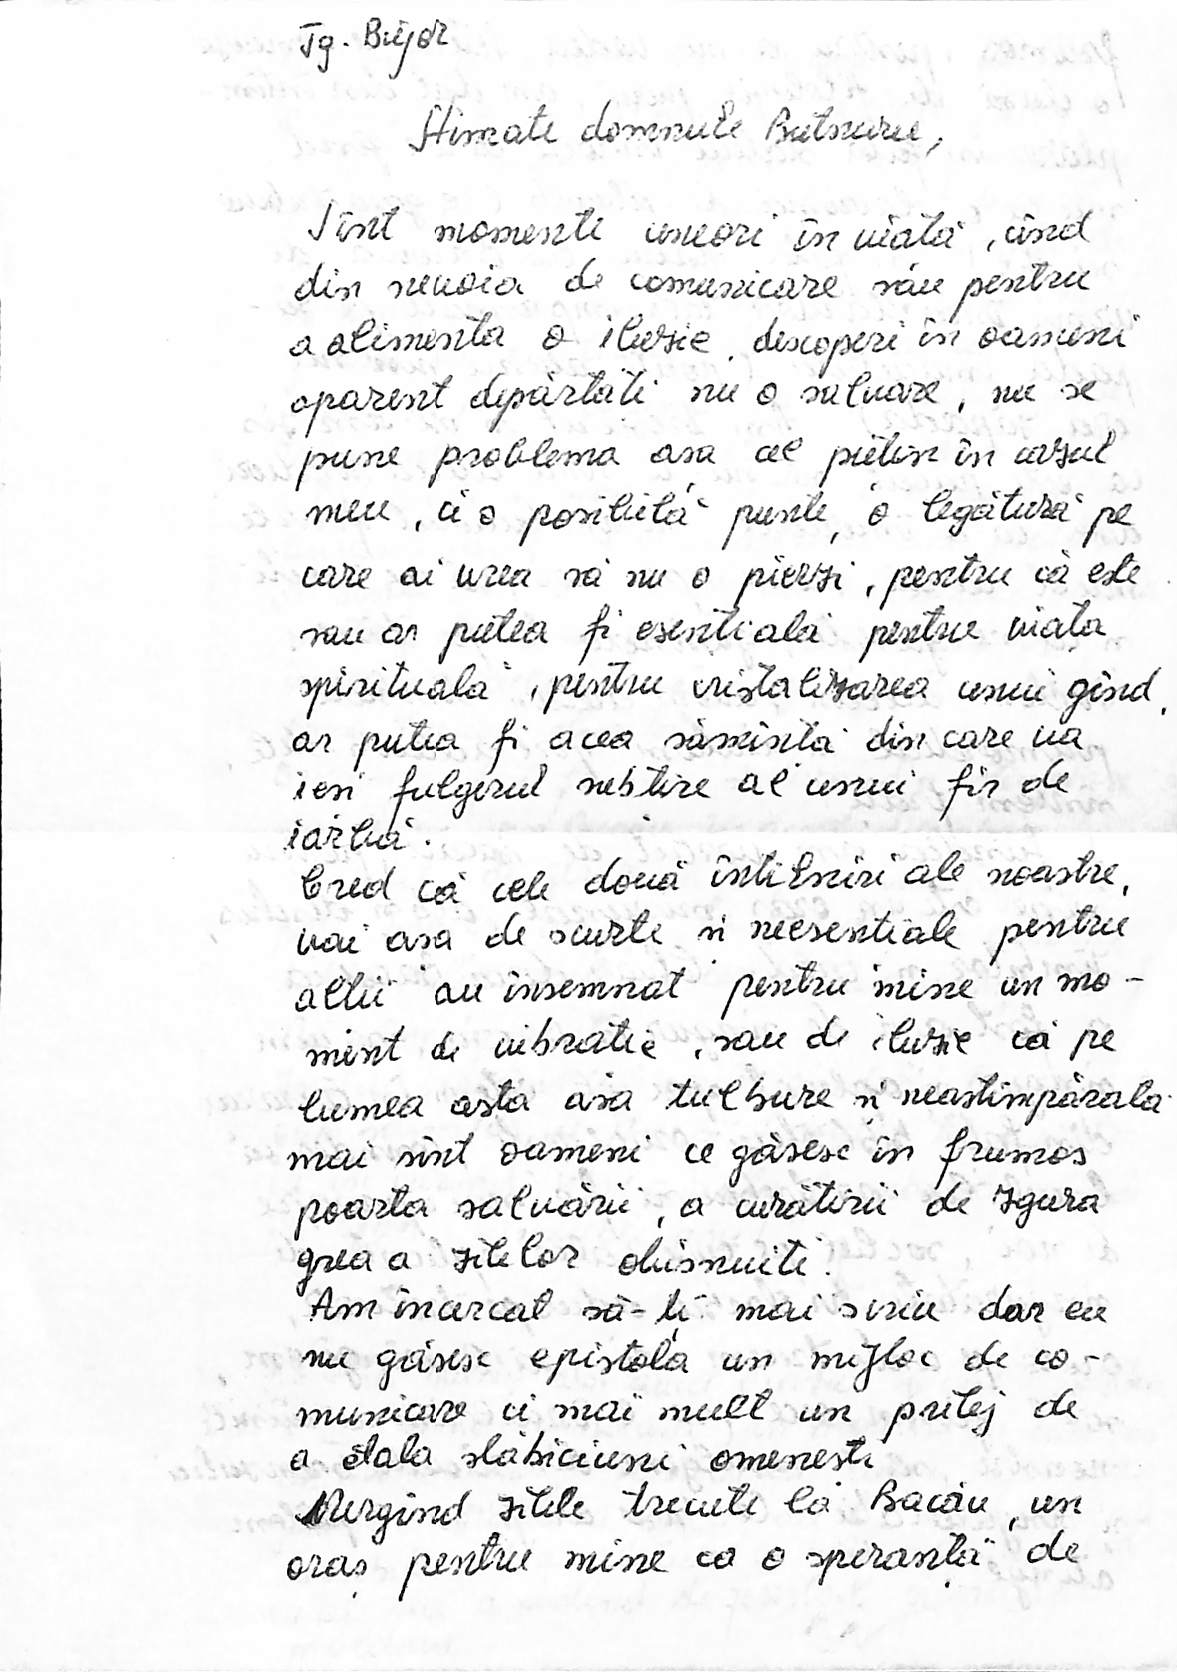 Tg. Bujor
Stimate domnule Butnaru,
Sînt momente uneori în viată, cînd
din nevoia de comunicare sau pentru
a alimenta o iluzie, descoperi în oameni
aparent depărtati nu o salvare, nu se
pune problema asa cel putin în cazul
meu, ci o posibilă punte, o legătură pe
care ai vrea să nu o pierzi, pentru că este
sau ar putea fi esentială pentru viata
spirituală, pentru cristalizarea unui gînd,
ar putea fi acea sămîntă din care va
iesi fulgerul subtire al unui fir de
iarbă.
Cred că cele două întîlniri ale noastre,
vai asa de scurte si neesentiale pentru
altii au însemnat pentru mine un mo-
ment de vibratie, sau de iluzie că pe
lumea asta asa tulbure si neastîmpărată
mai sînt oameni ce găsesc în frumos
poarta salvării, a curătirii de zgura
grea a zilelor obisnuite.
Am încercat să-ti mai scriu dar eu
nu găsesc epistola un mijloc de co-
municare ci mai mult un prilej de
a etala slăbiciuni omenesti
Mergînd zilele trecute la Bacău, un
oraș pentru mine ca o speranță de